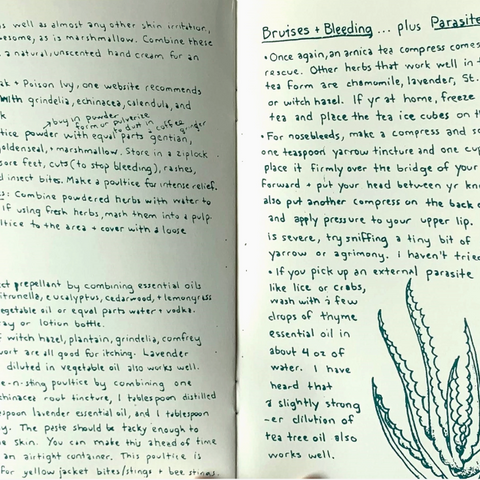 s well as almost any other skin irritation,
esome, as is marshmallow. Combine these
a natural, unscented hand cream for an
ak + Poison Ivy, one website recommends
with grindelia, echinacea, calendula, and
k
buy in powder
form or pulverize
to dust in coffee grinder
tice powder with equal parts gentian,
goldenseal, + marshmallow. Store in a ziplock
sore feet, cuts (to stop bleeding), rashes,
nd insect bites. Make a poultice for intense relief.
s: Combine powdered herbs with water to
If using fresh herbs, mash them into a pulp
ltice to the area + cover with a loose
ect prepellant by combining essential oils
itrunella, eucalyptus, cedarwood, + lemongrass
vegetable oil or equal parts water + vodka.
ray or lotion bottle.
f witch hazel, plantain, grindelia, comfrey
wort are all good for itching. Lavender
diluted in vegetable oil also works well.
e-n-sting poultice by combining one
chinacea root tincture, 1 tablespoon distilled
espoon lavender essential oil, and 1 tablespoon
y. The paste should be tacky enough to
e skin. You can make this ahead of time
an airtight container. This poultice is
for yellow jacket bites/stings + bee stings.
Bruises + Bleeding ... plus Parasite
• Once again, an arnica tea compress comes
rescue. Other herbs that work well in t
tea form are chamomile, lavender, St.
or witch hazel. If yr at home, freeze
tea and place the tea ice cubes on th
• For nosebleeds, make a compress and so
one teaspoon yarrow tincture and one cup
place it firmly over the bridge of your
forward + put your head between yr kn
also put another compress on the back o
and apply pressure to your upper lip.
is severe, try sniffing a tiny bit of
yarrow or agrimony. i haven't tried
• If you pick up an external parasite
like lice or crabs,
wash with a few
drops of thyme
essential oil in
about 4 oz of
water. I have
heard that
a slightly strong
-er dilution of
tea tree oil also
works well.